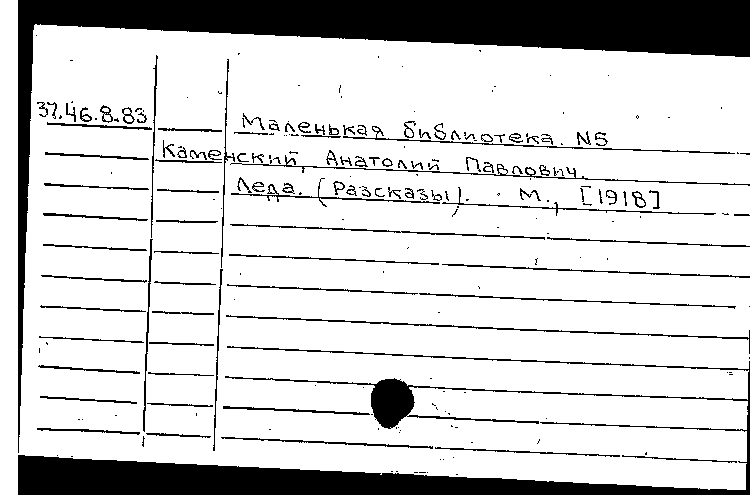 37.46.8.83
Маленькая библиотека. N5
Каменский, Анатолий Павлович.
Леда. (Рассказы). М., [1918]